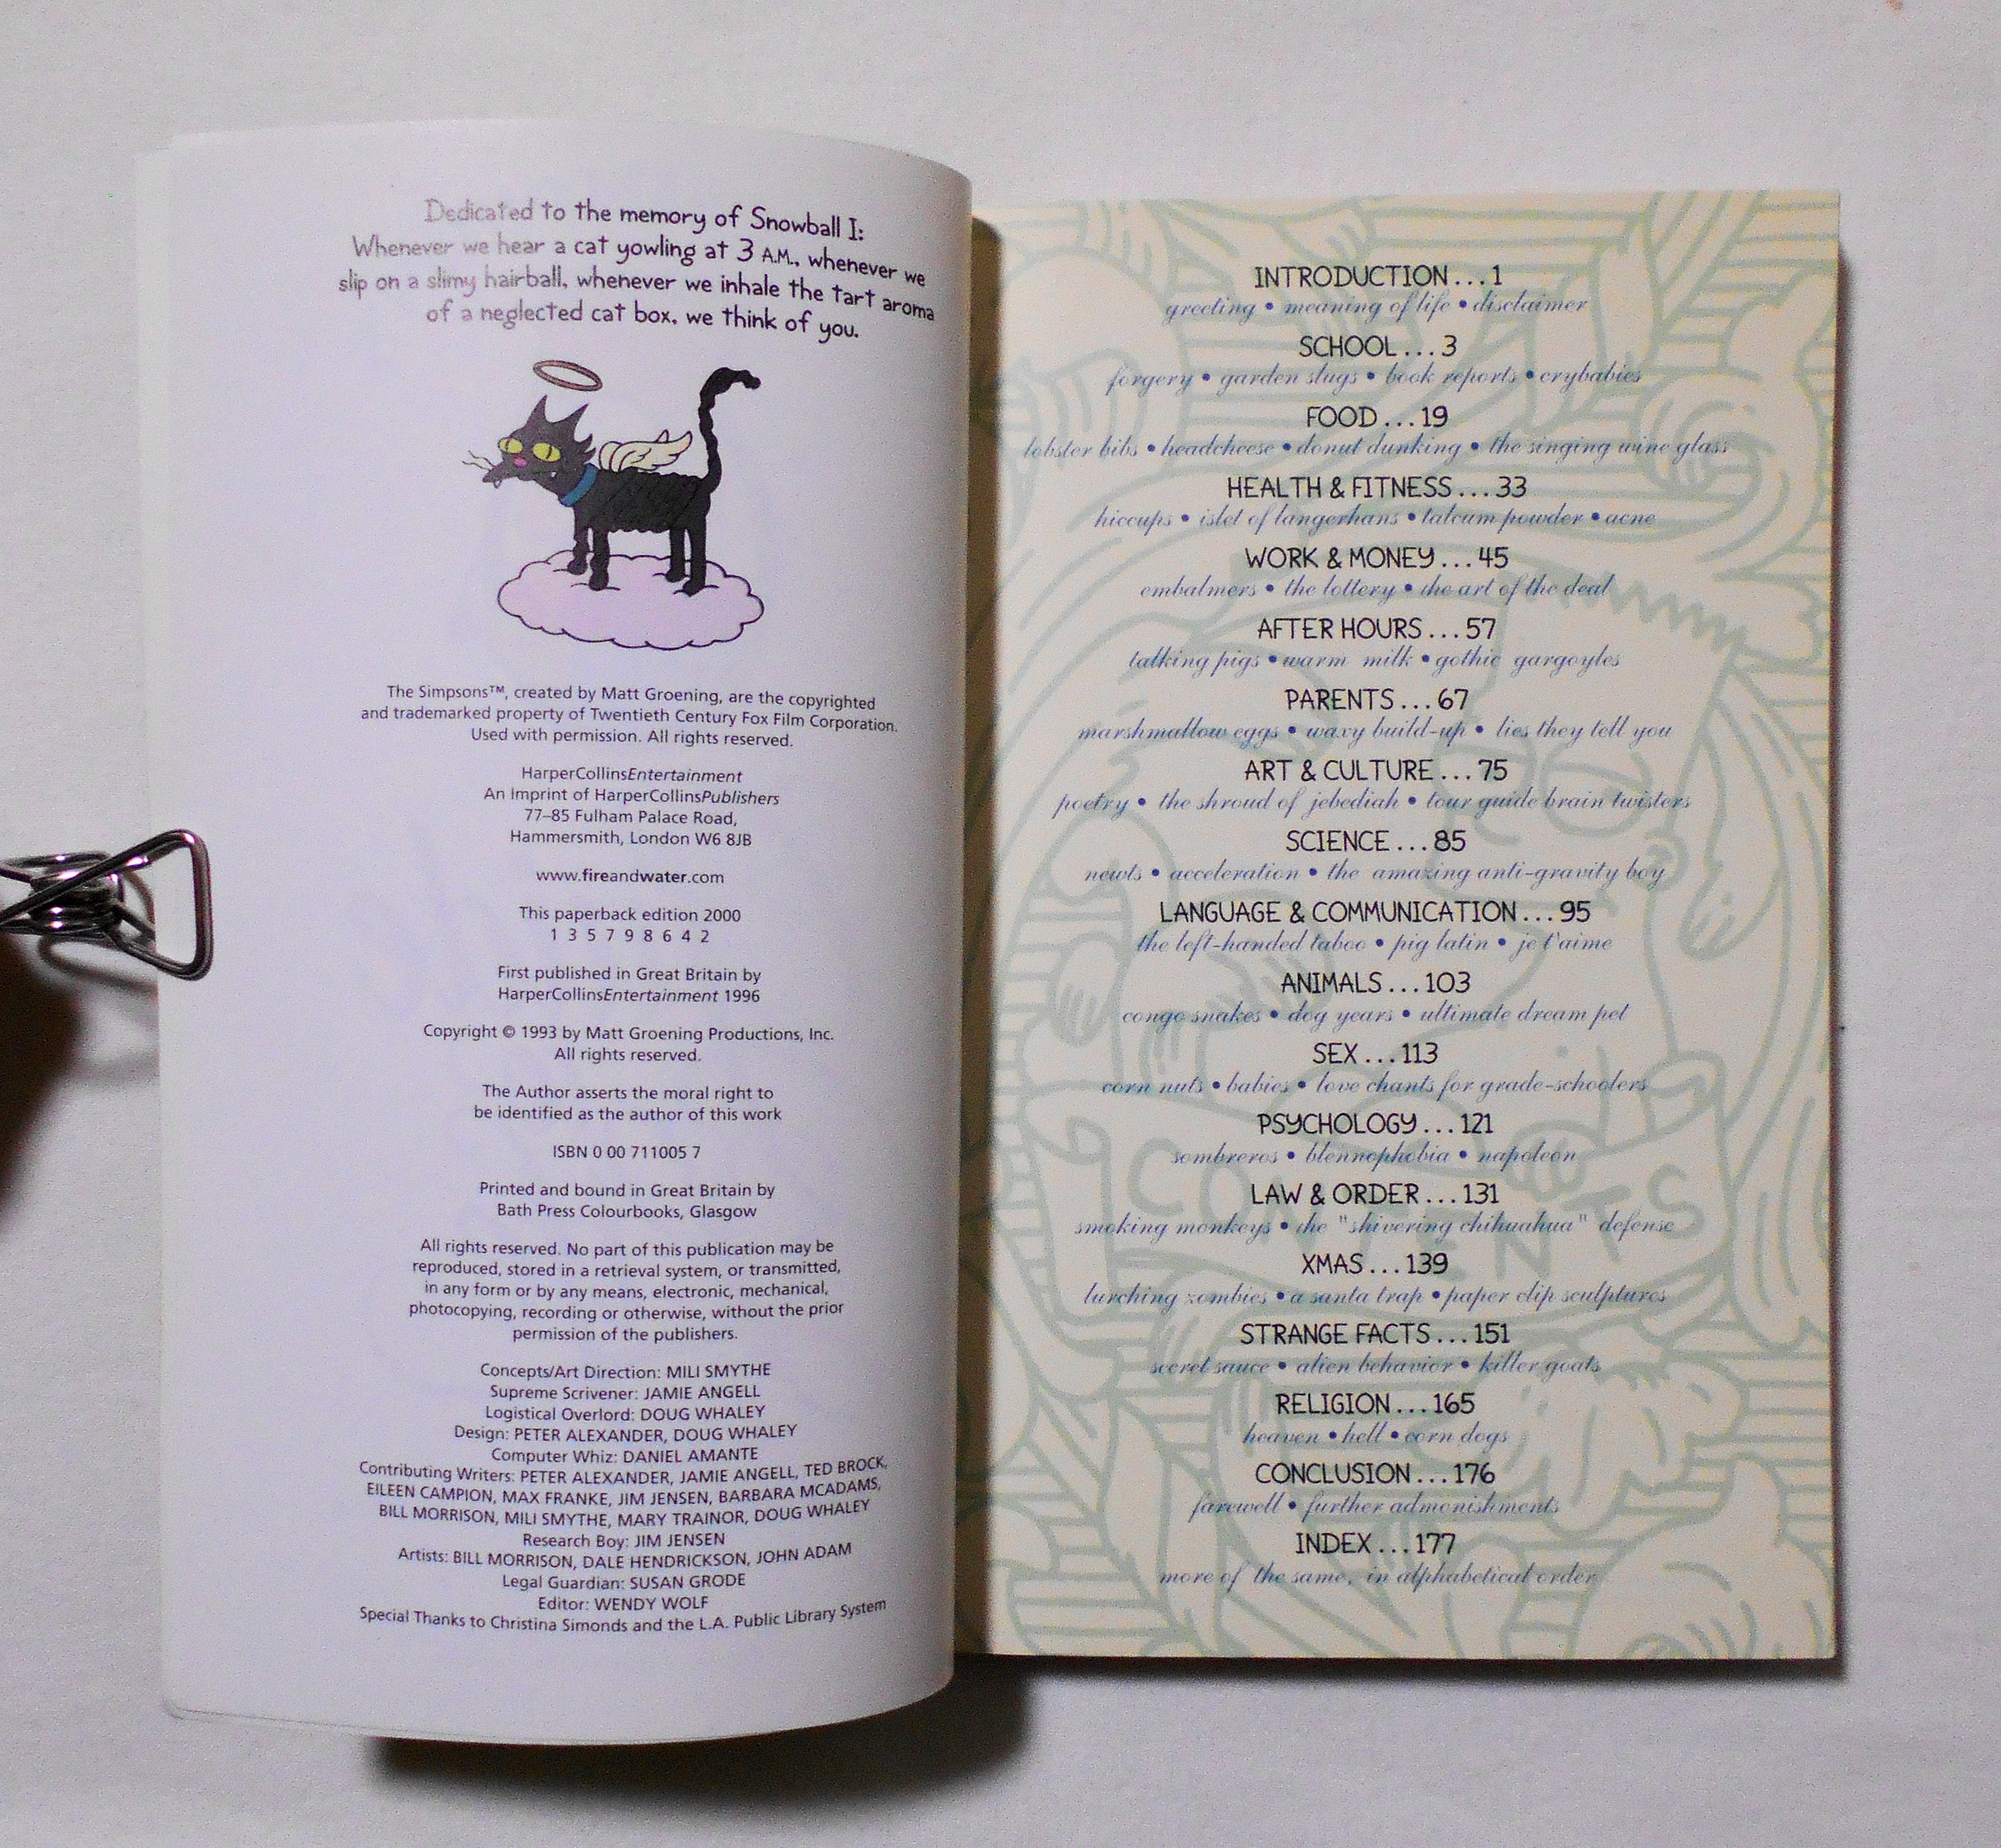 Dedicated to the memory of Snowball I:
Whenever we hear a cat yowling at 3 A.M., whenever we
slip on a slimy hairball, whenever we inhale the tart aroma
of a neglected cat box, we think of you.
The Simpsons™, created by Matt Groening, are the copyrighted
and trademarked property of Twentieth Century Fox Film Corporation.
Used with permission. All rights reserved.
HarperCollinsEntertainment
An Imprint of HarperCollinsPublishers
77–85 Fulham Palace Road,
Hammersmith, London W6 8JB
www.fireandwater.com
This paperback edition 2000
1 3 5 7 9 8 6 4 2
First published in Great Britain by
HarperCollinsEntertainment 1996
Copyright © 1993 by Matt Groening Productions, Inc.
All rights reserved.
The Author asserts the moral right to
be identified as the author of this work
ISBN 0 00 711005 7
Printed and bound in Great Britain by
Bath Press Colourbooks, Glasgow
All rights reserved. No part of this publication may be
reproduced, stored in a retrieval system, or transmitted,
in any form or by any means, electronic, mechanical,
photocopying, recording or otherwise, without the prior
permission of the publishers.
Concepts/Art Direction: MILI SMYTHE
Supreme Scrivener: JAMIE ANGELL
Logistical Overlord: DOUG WHALEY
Design: PETER ALEXANDER, DOUG WHALEY
Computer Whiz: DANIEL AMANTE
Contributing Writers: PETER ALEXANDER, JAMIE ANGELL, TED BROCK,
EILEEN CAMPION, MAX FRANKE, JIM JENSEN, BARBARA MCADAMS,
BILL MORRISON, MILI SMYTHE, MARY TRAINOR, DOUG WHALEY
Research Boy: JIM JENSEN
Artists: BILL MORRISON, DALE HENDRICKSON, JOHN ADAM
Legal Guardian: SUSAN GRODE
Editor: WENDY WOLF
Special Thanks to Christina Simonds and the L.A. Public Library System
INTRODUCTION...1
greeting • meaning of life • disclaimer
SCHOOL...3
forgery • garden slugs • book reports • crybabies
FOOD...19
lobster bibs • headcheese • donut dunking • the singing wine glass
HEALTH & FITNESS...33
hiccups • islet of langerhans • talcum powder • acne
WORK & MONEY...45
embalmers • the lottery • the art of the deal
AFTER HOURS...57
talking pigs • warm milk • gothic gargoyles
PARENTS...67
marshmallow eggs • waxy build-up • lies they tell you
ART & CULTURE...75
poetry • the shroud of jebediah • tour guide brain twisters
SCIENCE...85
newts • acceleration • the amazing anti-gravity boy
LANGUAGE & COMMUNICATION...95
the left-handed taboo • pig latin • je t'aime
ANIMALS...103
congo snakes • dog years • ultimate dream pet
SEX...113
corn nuts • babies • love chants for grade-schoolers
PSYCHOLOGY...121
sombreros • blennophobia • napoleon
LAW & ORDER...131
smoking monkeys • the "shivering chihuahua" defense
XMAS...139
lurching zombies • a santa trap • paper clip sculptures
STRANGE FACTS...151
secret sauce • alien behavior • killer goats
RELIGION...165
heaven • hell • corn dogs
CONCLUSION...176
farewell • further admonishments
INDEX...177
more of the same, in alphabetical order